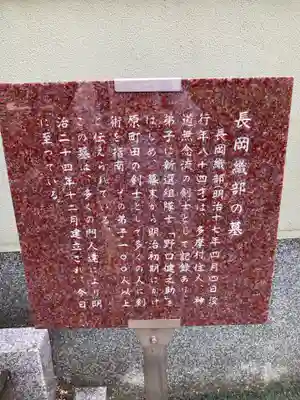 長岡織部の墓
長岡織部(明治十七年四月四日没
行年八十四才)は、多摩村住人、神
道無念流の剣士として記録あり、
弟子に新選組隊士「野口健之助」を
はじめ、幕末から明治初期にかけ
原町田の剣士として多くの人に剣
術を指南、その弟子一〇〇人以上
と伝えられている。
この墓は、多くの門人達により明
治二十四年十二月建立され、今日
に至っている。